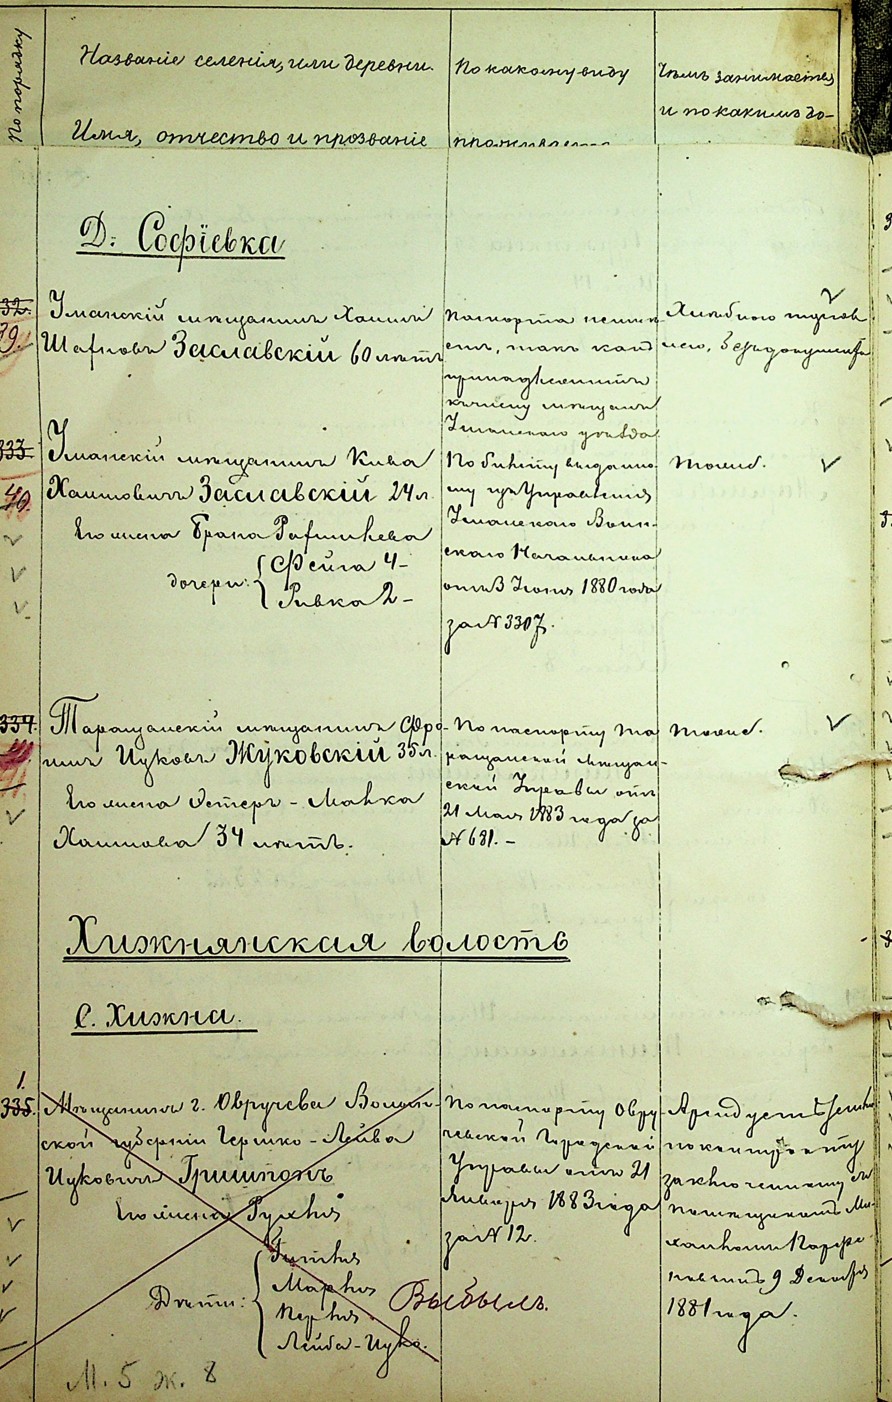 По порядку
Названіе селенія, или деревни.
Имя, отчество и прозваніе
По какому виду
проживаетъ
Чѣмъ занимается
и по какимъ до-
Д. Софіевка
332.
39.
Уманскій мѣщанинъ Хаимъ
Заславскій 60 лѣтъ
Паспорта
какъ
принадлежитъ
мѣщанъ
Уманскаго уѣзда
Хлѣбною торгов
лею, безъ документа
333.
40.
Уманскій мѣщанинъ Кива
Хаимовичъ Заславскій 24 л.
Его жена Брана
дочери:
Фейга 4 -
Ривка 2 -
По билету выданно-
му изъ Управленія
Уманскаго Воин-
скаго Начальника
отъ 3 Іюня 1880 года
за № 3307.
тоже.
334.
Таращанскій мѣщанинъ Фро-
имъ Ицковъ Жуковскій 35 л.
Его жена Эстеръ - Малка
Хаимова 34 лѣтъ.
По паспорту Та
ращанской мѣщан-
ской Управы отъ
21 Мая 1883 года за
№ 681. -
тоже.
Хижнянская волость
С. Хижна.
1.
335.
Мѣщанинъ г. Овручева Волын-
ской губерніи Гершко - Лейба
Ицковичъ
Его жена Рухля
Дѣти:
Марьня
Перля
Лейба - Ицко.
Выбылъ.
По паспорту Овру
чевской Городской
Управы отъ 21
Января 1883 года
за № 12.
Арендуетъ землю
по контракту
заключенному съ
помѣщикомъ Ми-
9 Декабря
1881 года.
М. 5 ж. 8